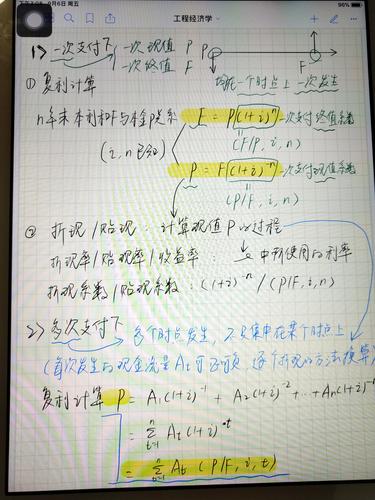 9月6日 周五
96%
工程经济学
1> 一次支付下 一次现值 P
一次终值 F
P
F
均在一个时点上一次发生
① 复利计算
n年末本利和F与本金P关系 F = P(1+i)^n 一次支付终值系数
(i, n已知) (F/P, i, n)
P = F(1+i)^-n 一次支付现值系数
(P/F, i, n)
② 折现/贴现：计算现值P的过程
折现率/贴现率/收益率：中所使用的利率
折现系数/贴现系数：(1+i)^-n / (P/F, i, n)
2> 多次支付下 多个时点发生，不只集中在某个时点上
(首次发生的现金流量At可正可负 逐个折现的方法换算)
复利计算 P = A1(1+i)^-1 + A2(1+i)^-2 + ... + An(1+i)^-n
= Σ At(1+i)^-t
= Σ At (P/F, i, t)